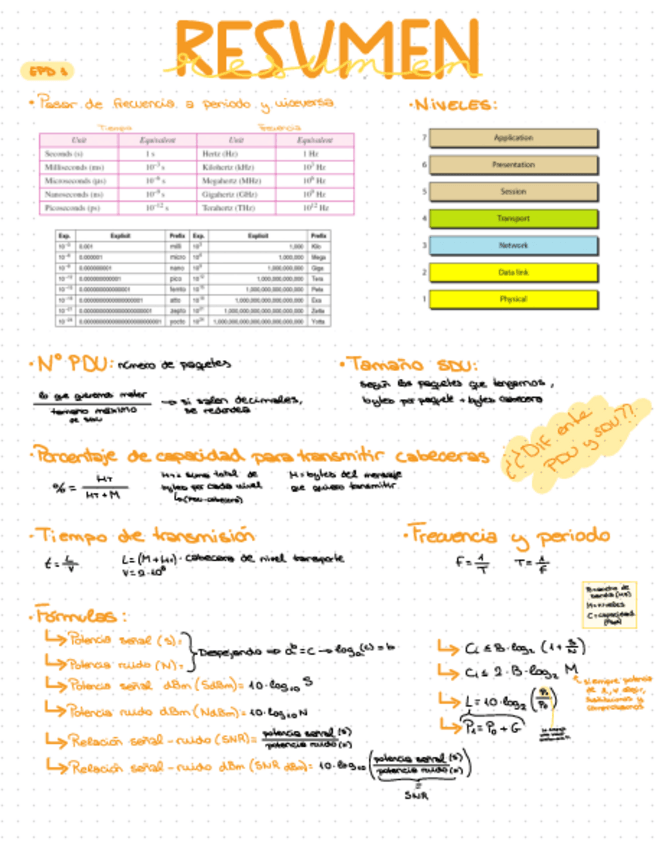 RESUMEN
resumen
EPD 1
• Pasar de frecuencia a periodo y viceversa
• NIVELES:
Tiempo Frecuencia
Unit Equivalent Unit Equivalent
Seconds (s) 1 s Hertz (Hz) 1 Hz
Milliseconds (ms) 10⁻³ s Kilohertz (kHz) 10³ Hz
Microseconds (μs) 10⁻⁶ s Megahertz (MHz) 10⁶ Hz
Nanoseconds (ns) 10⁻⁹ s Gigahertz (GHz) 10⁹ Hz
Picoseconds (ps) 10⁻¹² s Terahertz (THz) 10¹² Hz
7 Application
6 Presentation
5 Session
4 Transport
3 Network
2 Data link
1 Physical
Exp. Explicit Prefix Exp. Explicit Prefix
10⁻³ 0.001 milli 10³ 1,000 Kilo
10⁻⁶ 0.000001 micro 10⁶ 1,000,000 Mega
10⁻⁹ 0.000000001 nano 10⁹ 1,000,000,000 Giga
10⁻¹² 0.000000000001 pico 10¹² 1,000,000,000,000 Tera
10⁻¹⁵ 0.000000000000001 femto 10¹⁵ 1,000,000,000,000,000 Peta
10⁻¹⁸ 0.000000000000000001 atto 10¹⁸ 1,000,000,000,000,000,000 Exa
10⁻²¹ 0.000000000000000000001 zepto 10²¹ 1,000,000,000,000,000,000,000 Zetta
10⁻²⁴ 0.000000000000000000000001 yocto 10²⁴ 1,000,000,000,000,000,000,000,000 Yotta
• Nº PDU: número de paquetes
lo que queremos meter / tamaño máximo de SDU → si salen decimales, se redondea
• Tamaño SDU:
según los paquetes que tengamos,
bytes por paquete + bytes cabecera
¿¿DIF entre
PDU y SDU??
• Porcentaje de capacidad para transmitir cabeceras
% = HT / HT + M
HT = suma total de
bytes por cada nivel
↳(PDU-cabecera)
M = bytes del mensaje
que quiero transmitir
• Tiempo de transmisión
t = L / V
L = (M + HT) · cabecera de nivel transporte
V = 2·10⁸
• Frecuencia y periodo
F = 1/T T = 1/F
B = ancho de
banda (Hz)
M = niveles
C = capacidad
• Fórmulas:
↳ Potencia señal (S) =
↳ Potencia ruido (N) =
Despejando ⇒ aᵇ = c → logₐ(c) = b
↳ Potencia señal dBm (SdBm) = 10·log₁₀ S
↳ Potencia ruido dBm (NdBm) = 10·log₁₀ N
↳ Relación señal-ruido (SNR) = potencia señal (S) / potencia ruido (N)
↳ Relación señal-ruido dBm (SNR dBm) = 10·log₁₀ (potencia señal (S) / potencia ruido (N))
=
SNR
↳ C ≤ B·log₂ (1 + S/N)
↳ C ≤ 2·B·log₂ M
siempre potencia
de 2, es decir,
sustituimos y
comprobamos
↳ L = 10·log₂ (P₁/P₀)
↳ P₁ = P₀ + G